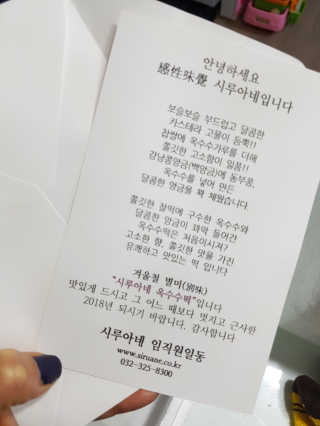 안녕하세요
感性味覺 시루아네입니다
보슬보슬 부드럽고 달콤한
카스테라 고물이 듬뿍!!
찹쌀에 옥수수가루를 더해
쫄깃한 고소함이 일품!!
강낭콩앙금(백앙금)에 동부콩,
옥수수를 넣어 만든
달콤한 앙금을 꽉 채웠습니다.
쫄깃한 찰떡에 구수한 옥수수와
달콤한 앙금이 꽈악 들어간
옥수수떡은 처음이시죠?
고소한 향, 쫄깃한 맛을 가진
유쾌하고 맛있는 떡 입니다
겨울철 별미(別味)
"시루아네 옥수수떡"입니다
맛있게 드시고 그 어느 때보다 멋지고 근사한
2018년 되시기 바랍니다. 감사합니다
시루아네 임직원일동
www.siruane.co.kr
032-325-8300